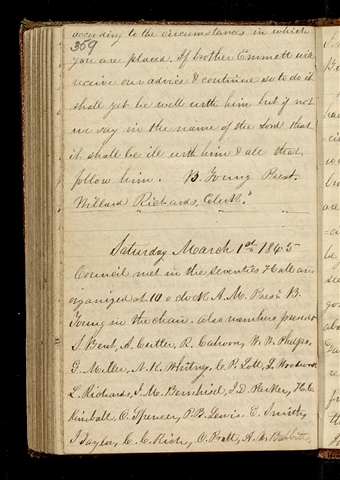 according to the circumstances in which
359
you are placed. If brother Emmett will
receive our advice & continue so to do it
shall yet be well with him but if not
we say in the name of the Lord that
it shall be ill with him & all that
follow him. B. Young Prest.
Willard Richards, Clerk."
Saturday March 1st 1845
Council met in the seventies Hall and
organized at 10 o clock A.M. Prest B.
Young in the chair. also members present
S. Bent, A. Cutler, R. Cahoon, W. W. Phelps,
G. Miller, N. K. Whitney, C. P. Lott, L. Woodworth
L. Richards, J. M. Bernhisel, J. D. Parker, H. C.
Kimball, O. Spencer, P. B. Lewis. E. Smith,
J Taylor, C. C. Rich, O. Pratt, A. W. Babbitt,